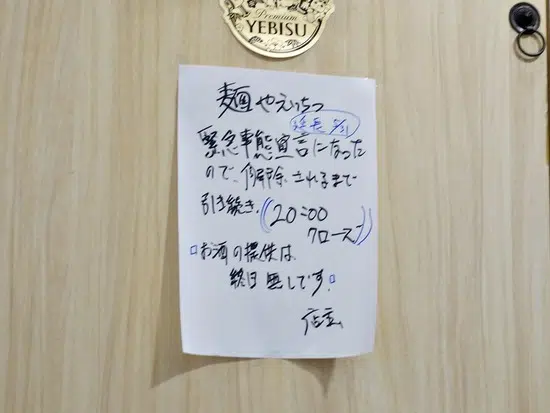 Premium
YEBISU
麺やえいちつ
延長 5/31
緊急事態宣言になった
ので、解除されるまで
引き続き、((20:00
クローズ))
▫お酒の提供は
終日無しです。▫
店主